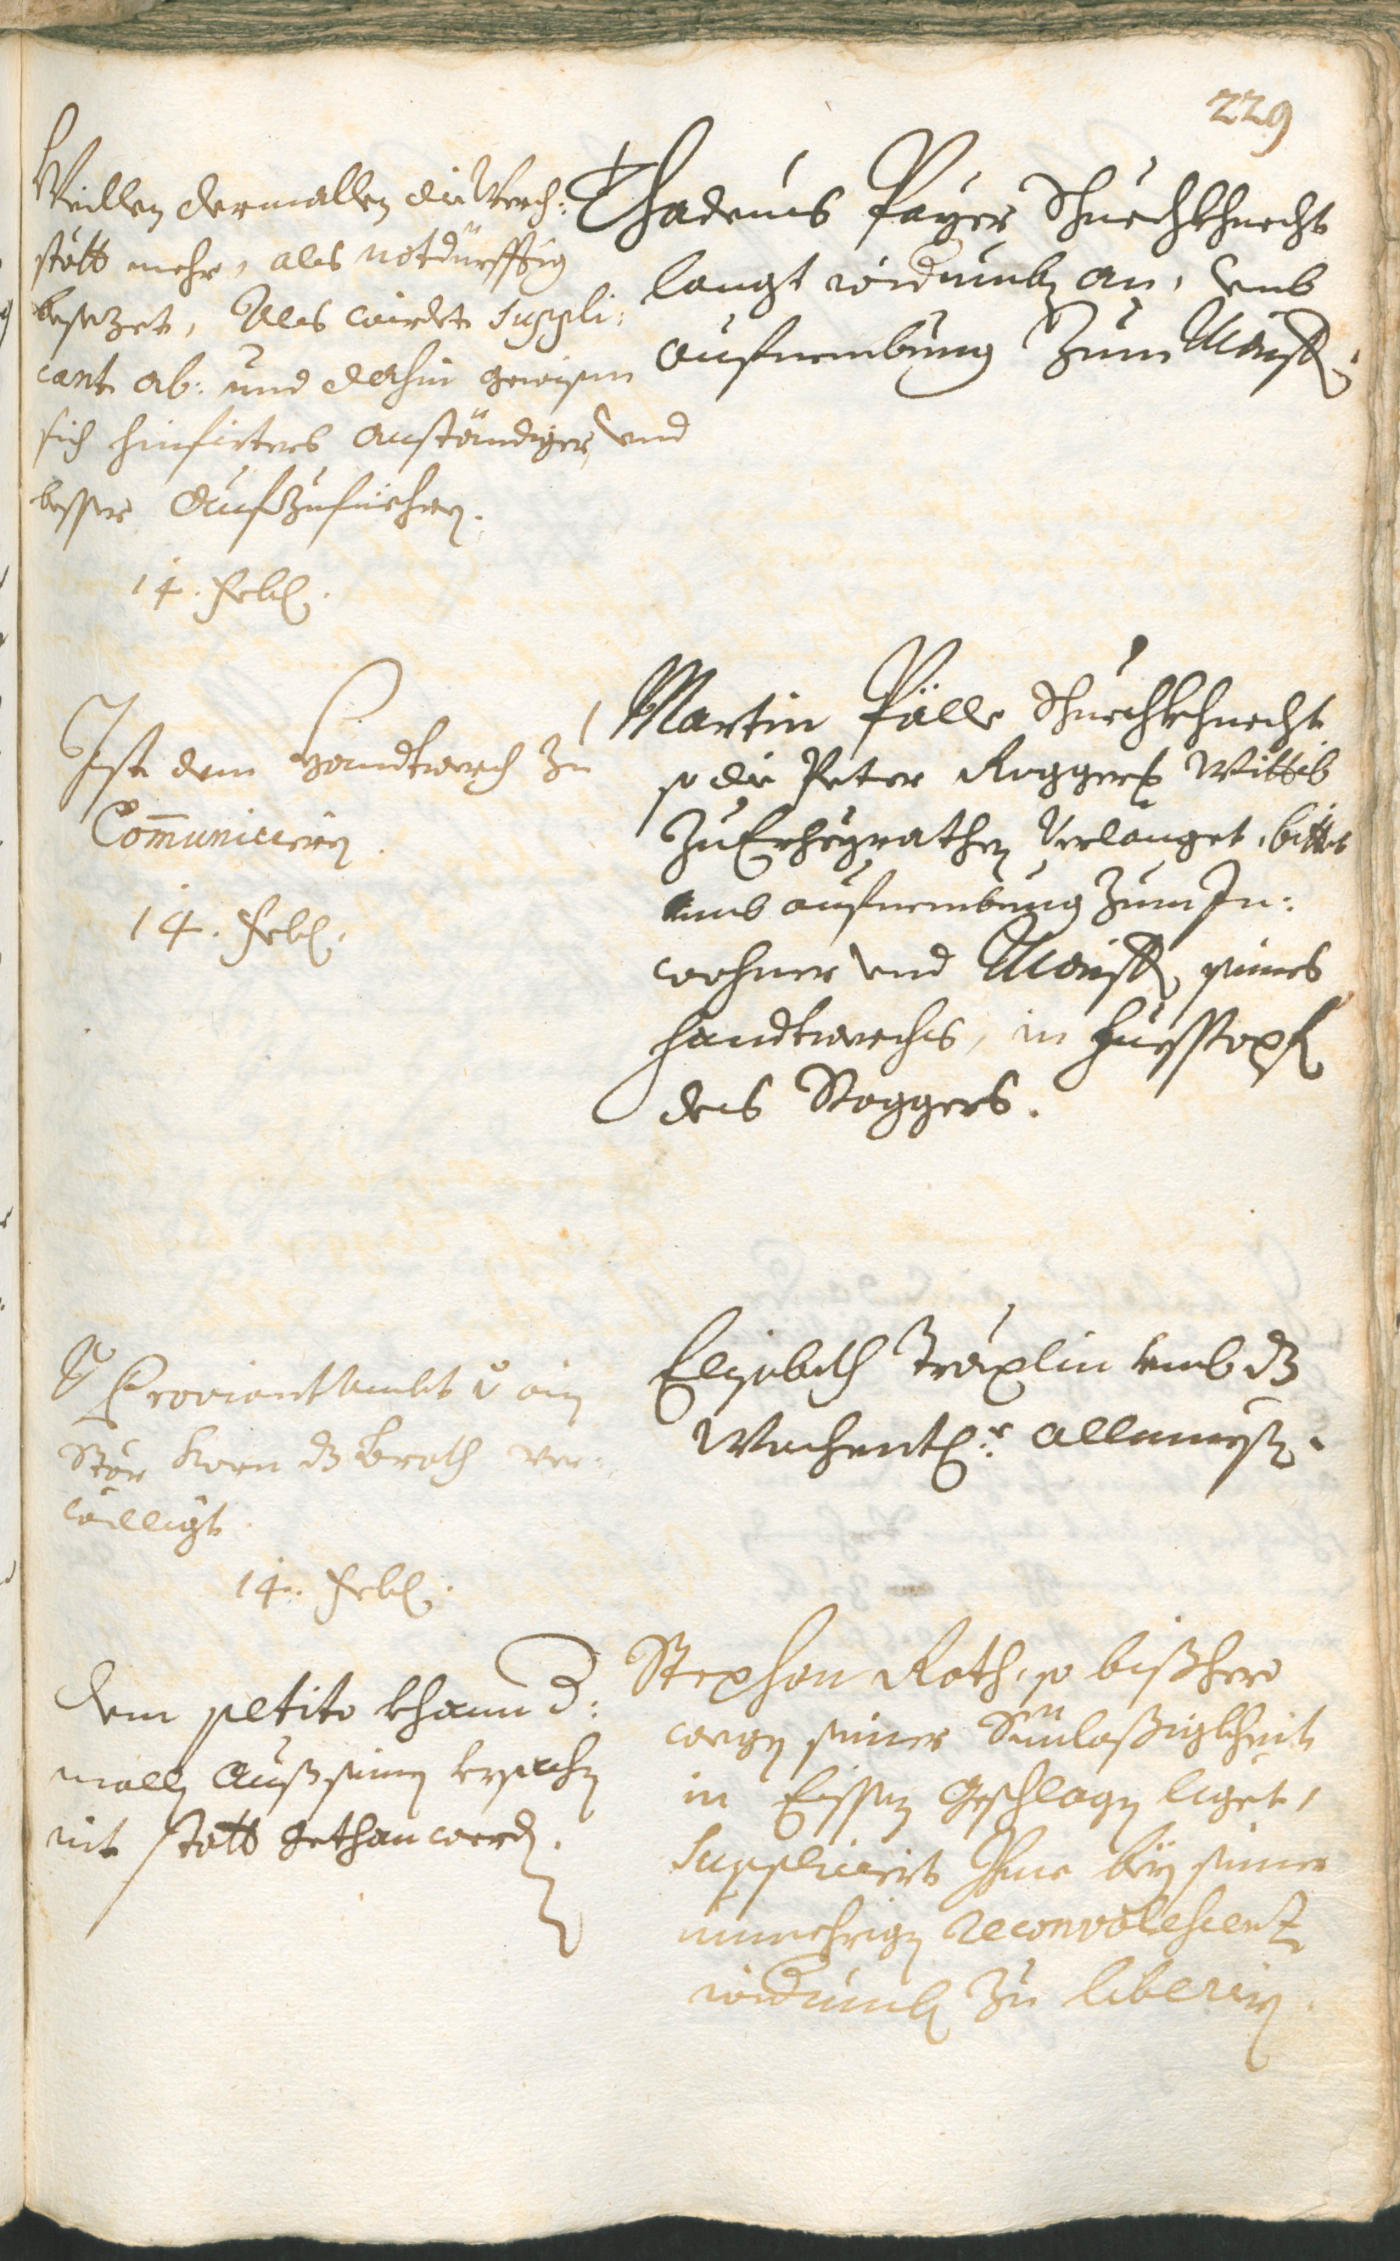 229
Weillen dermallen die Werch:
stött mehr, als notdürfftig
besezet, Als wirdt Suppli:
cant ab: und dahin gewisen
sich hinfirters anständiger, und
besser Aufzufiehren.
14. Feb.
Thadeus Payer Schuechkhnecht
langt widumb an, umb
aufnembung zum Maister.
Ist dem Handtwerch zu
Communiciern.
14. Feb.
Martin Pälle Schuechkhnecht
so die Peter Roggers Wittib
zu Erheyrathen Verlanget, bittet
umb aufnembung zum In:
wohner und Maister seines
handtwerchs, in
des Roggers.
Proviantambt
Stär Korn Broth ver:
willigt
14. Feb.
Elisabeth Träxlin umb dz
Wochentl: Allmuesen.
Dem petito khann d:
mallen Auß seinen ursachen
nit statt gethan werden.
Stephan Roth, so bißhero
wegen seiner Sünloßigkheit
in Eissen geschlagen liget,
Suppliciert Ihne bey seiner
nunmehrigen reconvalescenz
widumb zu liberiern.